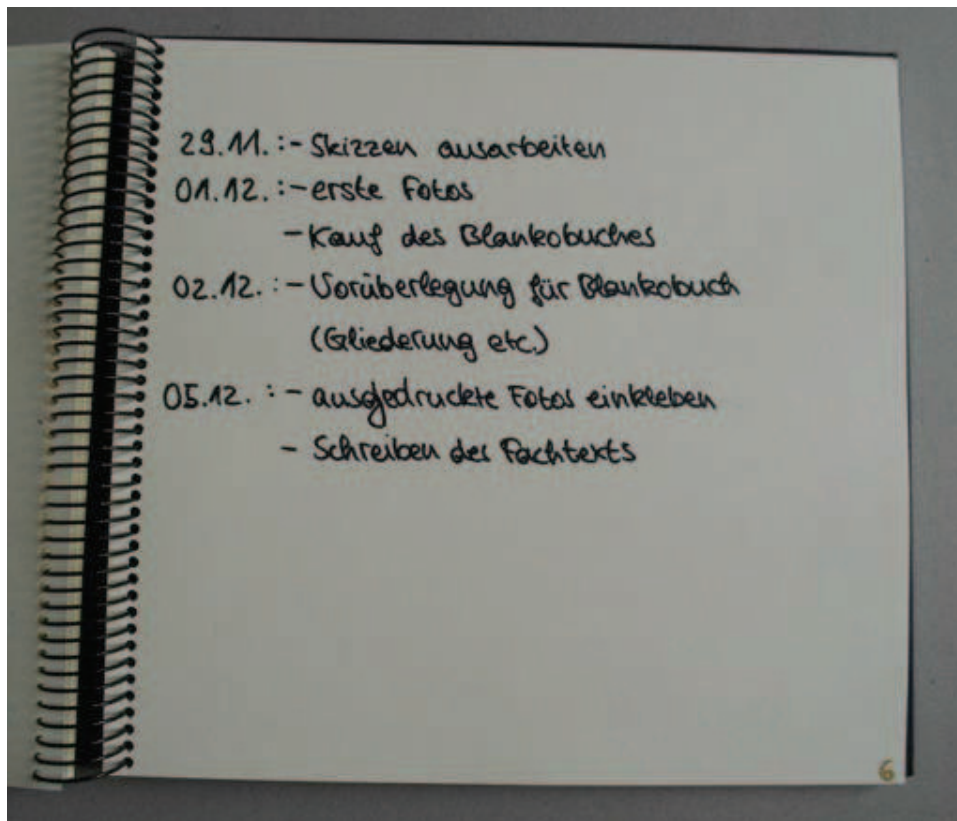 29.11.:- Skizzen ausarbeiten
01.12.:- erste Fotos
- Kauf des Blankobuches
02.12.:- Vorüberlegung für Blankobuch
(Gliederung etc.)
05.12.:- ausgedruckte Fotos einkleben
- Schreiben des Fachtexts
6